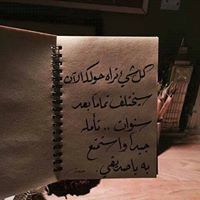 كل شيء تراه حولك الآن
سيختلف تماماً بعد
سنوات .. تأمله
جيداً واستمتع
به يا صديقي.